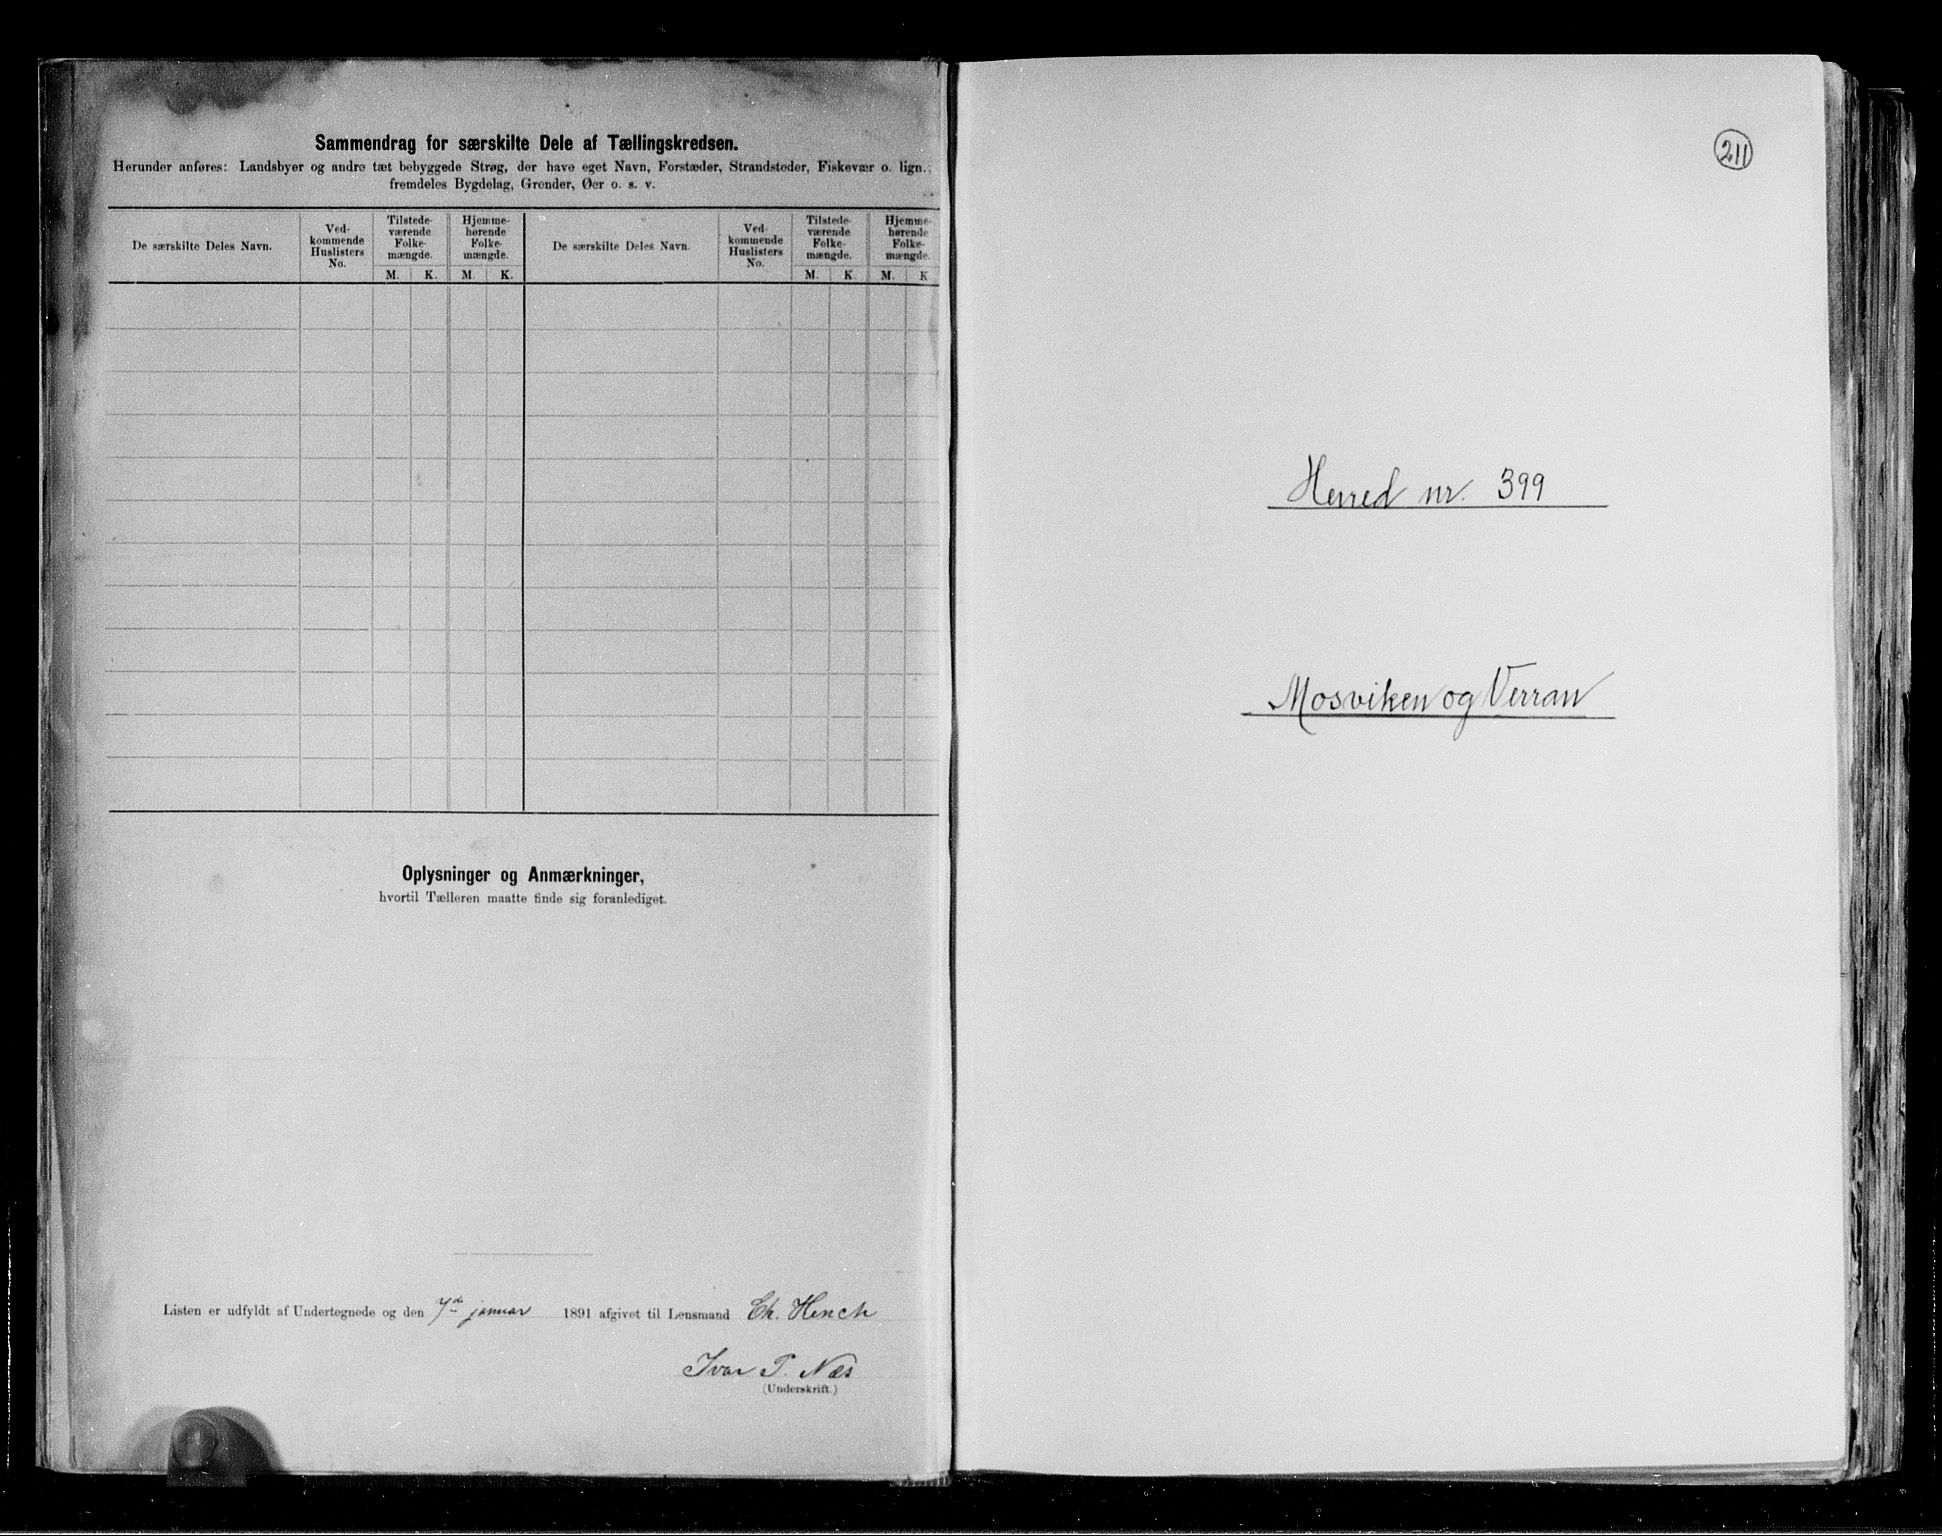 Sammendrag for særskilte Dele af Tællingskredsen.
Herunder anføres: Landsbyer og andre tæt bebyggede Strøg, der have eget Navn, Forstæder, Strandsteder, Fiskevær o. lign.;
fremdeles Bygdelag, Grender, Øer o. s. v.
De særskilte Deles Navn.
Ved-
kommende
Huslisters
No.
Tilstede-
værende
Folke-
mængde.
M. K.
Hjemme-
hørende
Folke-
mængde.
M. K.
De særskilte Deles Navn.
Ved-
kommende
Huslisters
No.
Tilstede-
værende
Folke-
mængde.
M. K.
Hjemme-
hørende
Folke-
mængde.
M. K
Oplysninger og Anmærkninger,
hvortil Tælleren maatte finde sig foranlediget.
Listen er udfyldt af Undertegnede og den 7de januar 1891 afgivet til Lensmand Ch. Hench
Ivar P. Næs
(Underskrift.)
211
Herred nr. 399
Mosviken og Verran